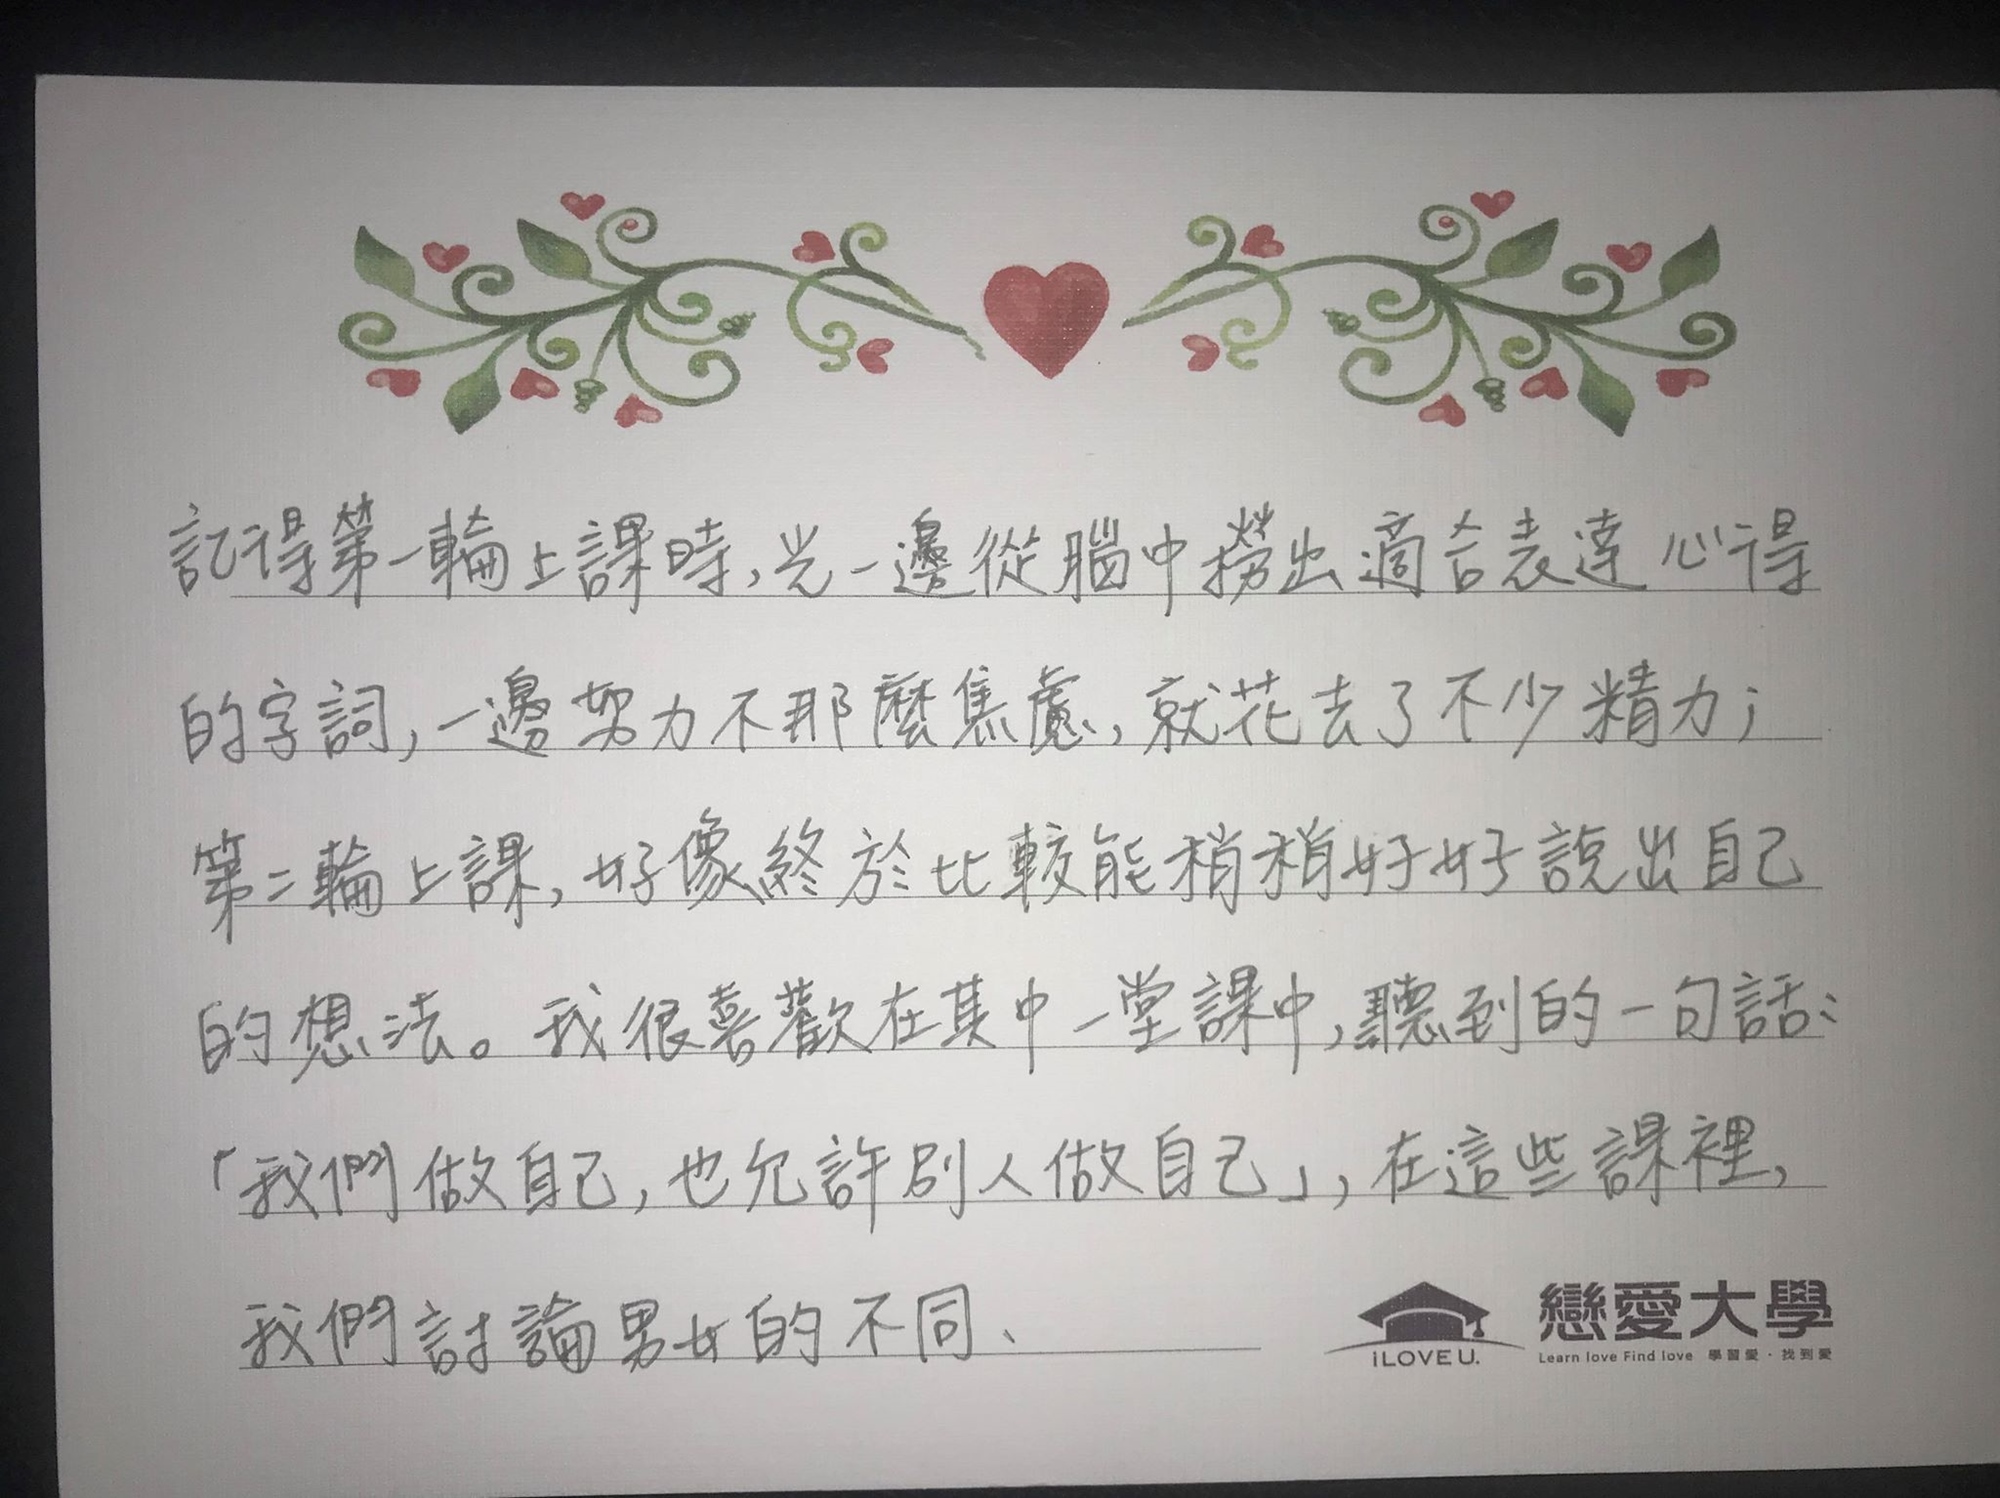 記得第一輪上課時,光一邊從腦中撈出適合表達心得
的字詞,一邊努力不那麼焦慮,就花去了不少精力;
第二輪上課,好像終於比較能稍稍好好說出自己
的想法。我很喜歡在其中一堂課中,聽到的一句話:
「我們做自己,也允許別人做自己」,在這些課裡,
我們討論男女的不同、
iLOVE U.
戀愛大學
Learn love Find love 學習愛·找到愛